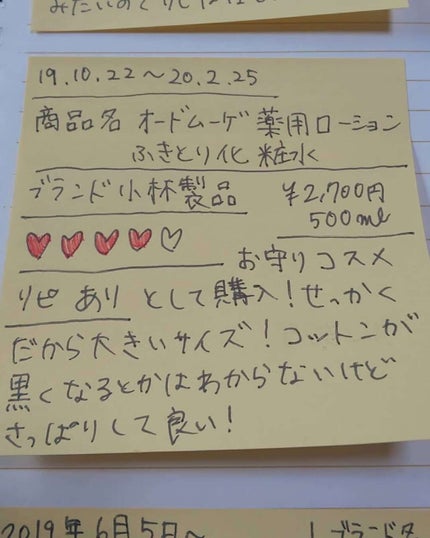 19.10.22〜20.2.25
商品名 オードムーゲ 薬用ローション
ふきとり化粧水
ブランド 小林製品 ¥2,700円
500ml
♥♥♥♥♡ お守りコスメ
リピ あり として購入!せっかく
だから大きいサイズ!コットンが
黒くなるとかはわからないけど
さっぱりして良い!
2019年6月5日〜 ブランド名